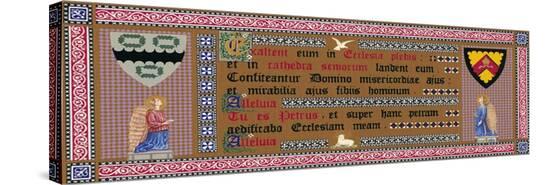 Exaltent eum in Ecclesia plebis:
et in cathedra seniorum laudent eum
Confiteantur Domino misericordiae ajus:
et mirabilia ajus filiis hominum
Alleluia
Tu es Petrus, et super hanc petram
aedificabo Ecclesiam meam.
Alleluia